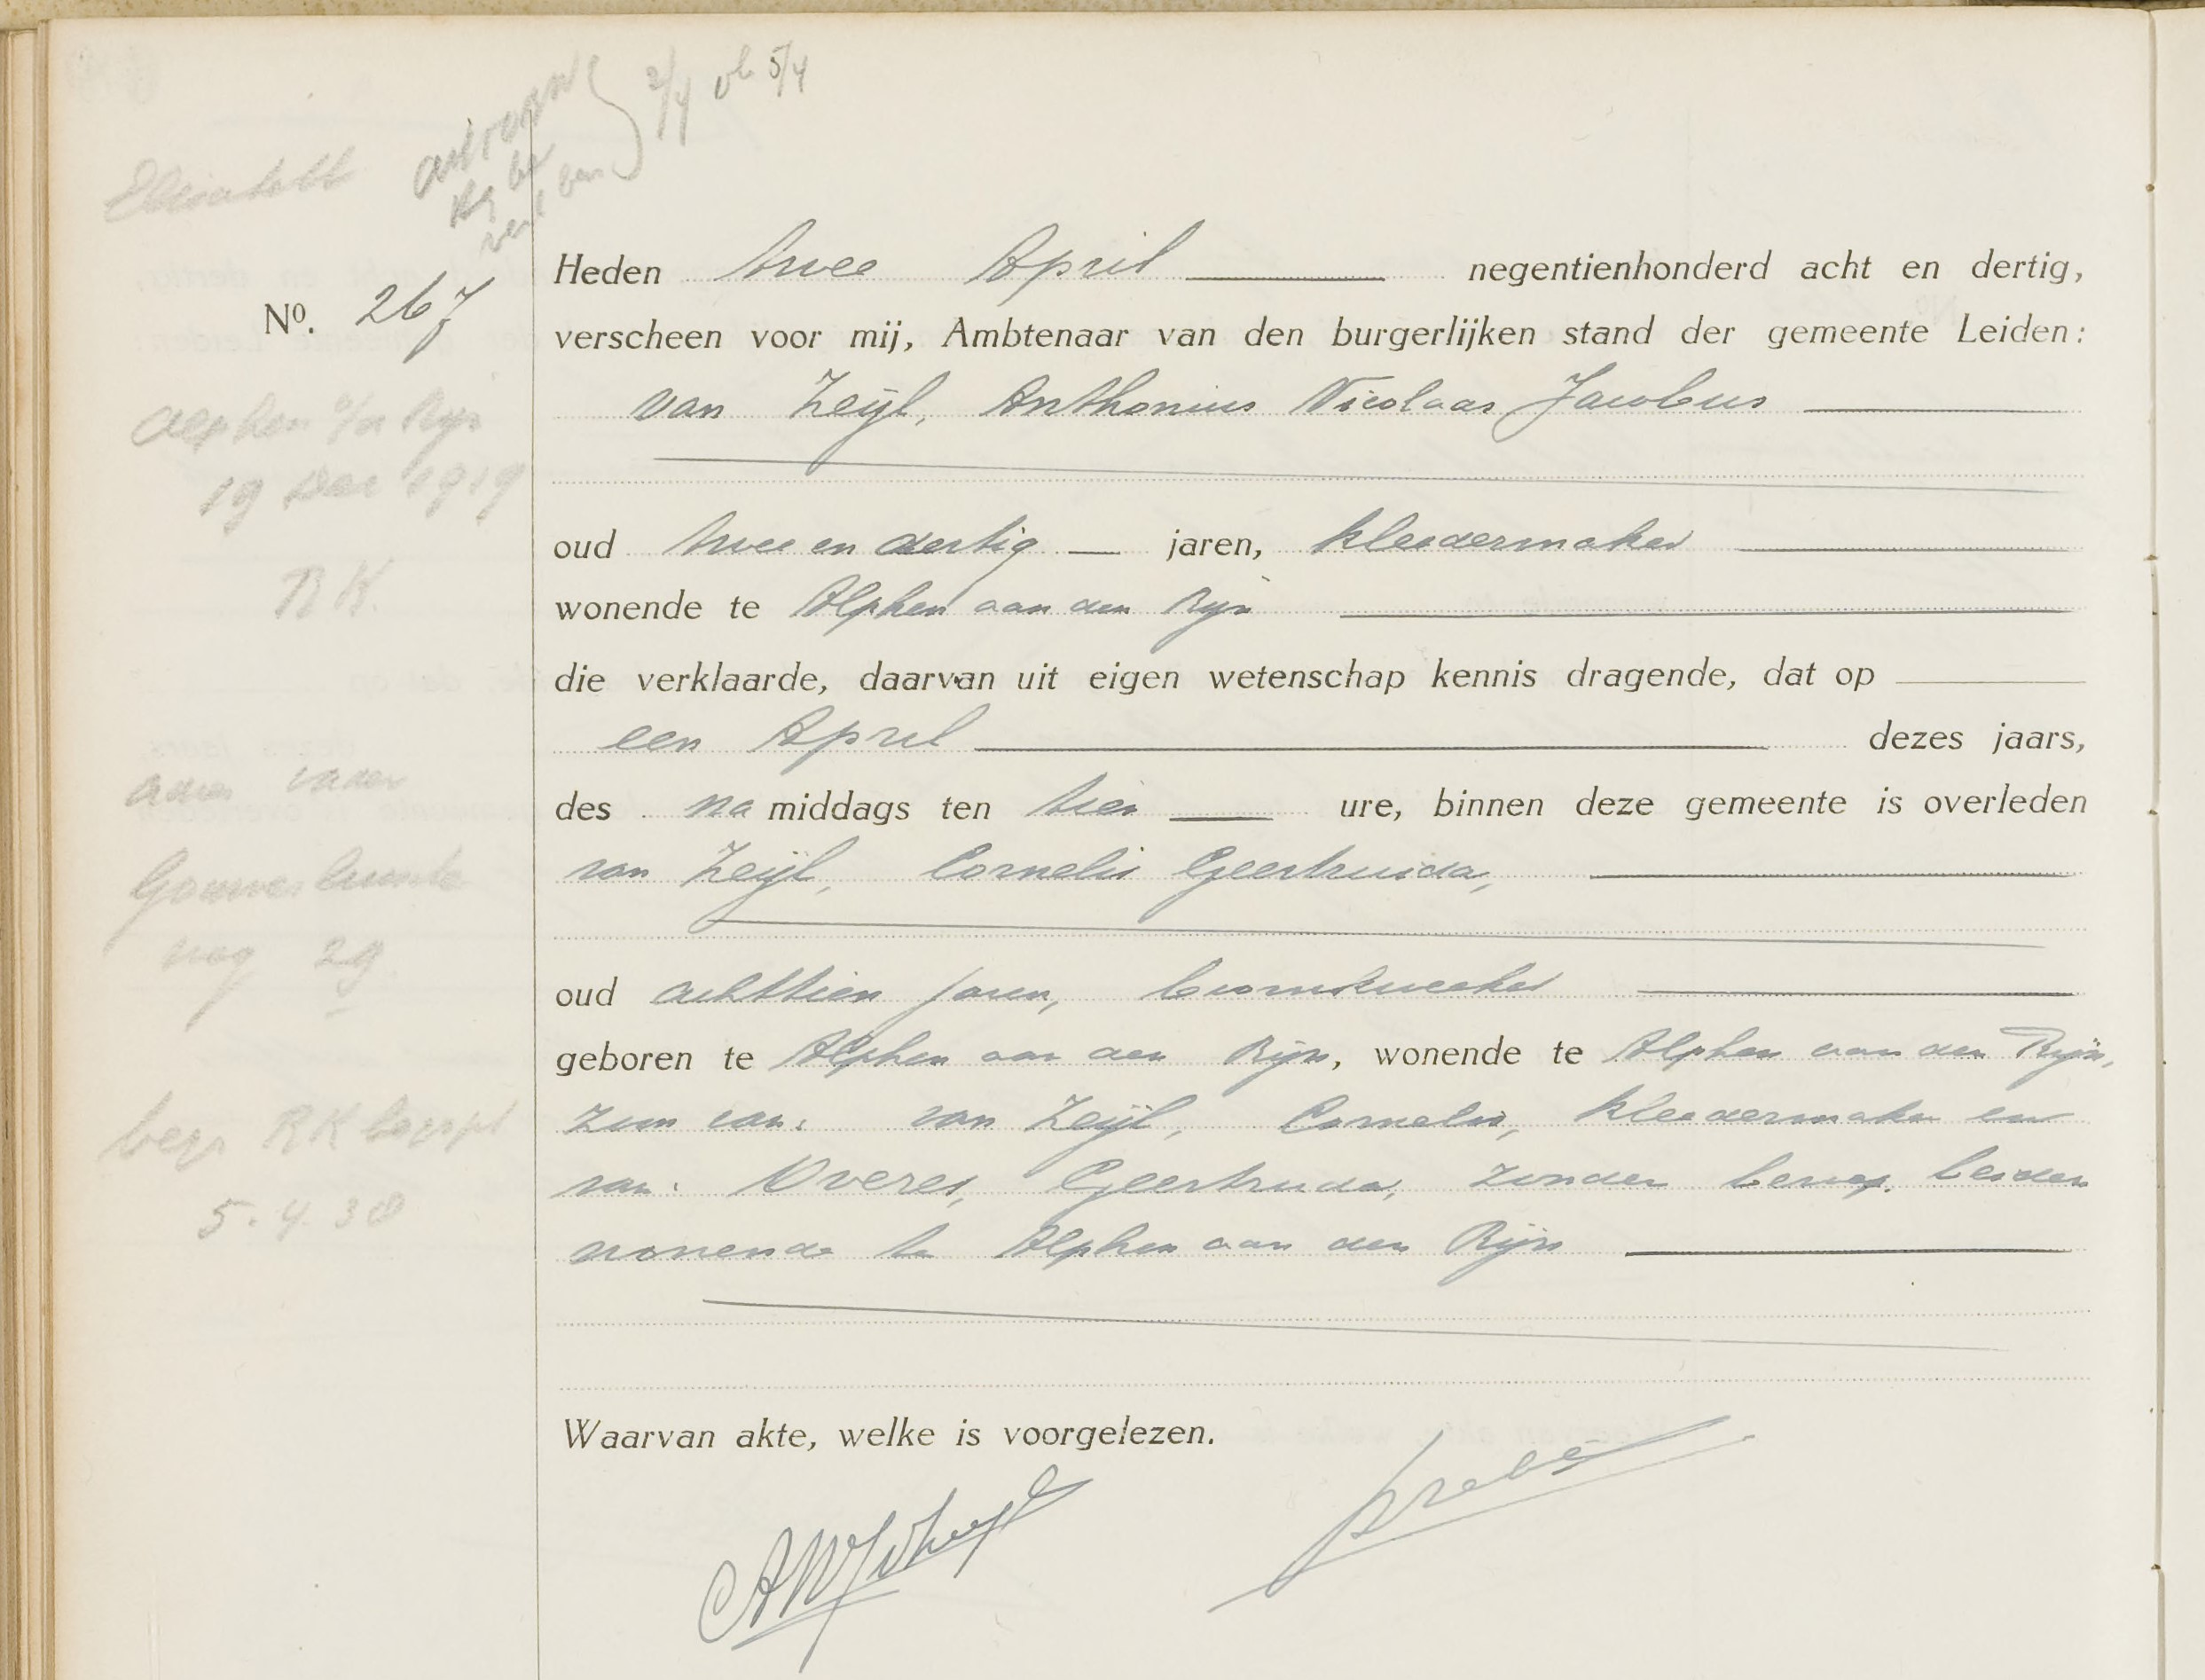 Elisabeth
2/4 5/4
No. 267
Heden twee April negentienhonderd acht en dertig,
verscheen voor mij, Ambtenaar van den burgerlijken stand der gemeente Leiden:
van Zeijl, Anthonius Nicolaas Jacobus
oud twee en dertig jaren, kleedermaker
wonende te Alphen aan den Rijn
die verklaarde, daarvan uit eigen wetenschap kennis dragende, dat op
een April dezes jaars,
des na middags ten tien ure, binnen deze gemeente is overleden
van Zeijl, Cornelis Geertruida,
oud achttien jaren, boomkweeker
geboren te Alphen aan den Rijn, wonende te Alphen aan den Rijn,
zoon van: van Zeijl, Cornelis, kleedermaker en
van: Overes, Geertruida, zonder beroep, beiden
wonende te Alphen aan den Rijn
Waarvan akte, welke is voorgelezen.
Alphen a/d Rijn
19 Dec 1919
R K.
adres vader
29
begr RK begrpl
5.4.38